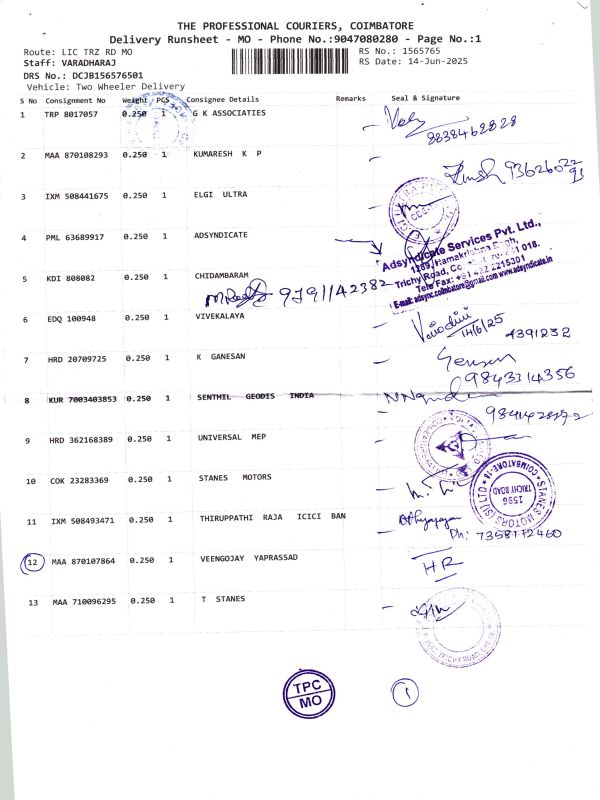 THE PROFESSIONAL COURIERS, COIMBATORE
Delivery Runsheet - MO - Phone No.:9047080280 - Page No.:1
Route: LIC TRZ RD MO RS No.: 1565765
Staff: VARADHARAJ RS Date: 14-Jun-2025
DRS No.: DCJB156576501
Vehicle: Two Wheeler Delivery
S No Consignment No Weight PCS Consignee Details Remarks Seal & Signature
1 TRP 8017057 0.250 1 G K ASSOCIATIES
8838462828
2 MAA 870108293 0.250 1 KUMARESH K P
3 IXM 508441675 0.250 1 ELGI ULTRA
4 PML 63689917 0.250 1 ADSYNDICATE
Adsyndicate Services Pvt. Ltd.,
Trichy Road,
Tele Fax: +91 422 2215301
5 KDI 808082 0.250 1 CHIDAMBARAM
9791142382
6 EDQ 100948 0.250 1 VIVEKALAYA
14/6/25
4391232
7 HRD 20709725 0.250 1 K GANESAN
9843314356
8 KUR 7003403853 0.250 1 SENTHIL GEODIS INDIA
9 HRD 362168389 0.250 1 UNIVERSAL MEP
10 COK 23283369 0.250 1 STANES MOTORS
STANES MOTORS (SI) LTD
1596
TRICHY ROAD
COIMBATORE-18
11 IXM 508493471 0.250 1 THIRUPPATHI RAJA ICICI BAN
Ph: 7358172460
12 MAA 870107864 0.250 1 VEENGOJAY YAPRASSAD
HR
13 MAA 710096295 0.250 1 T STANES
TPC
MO
1